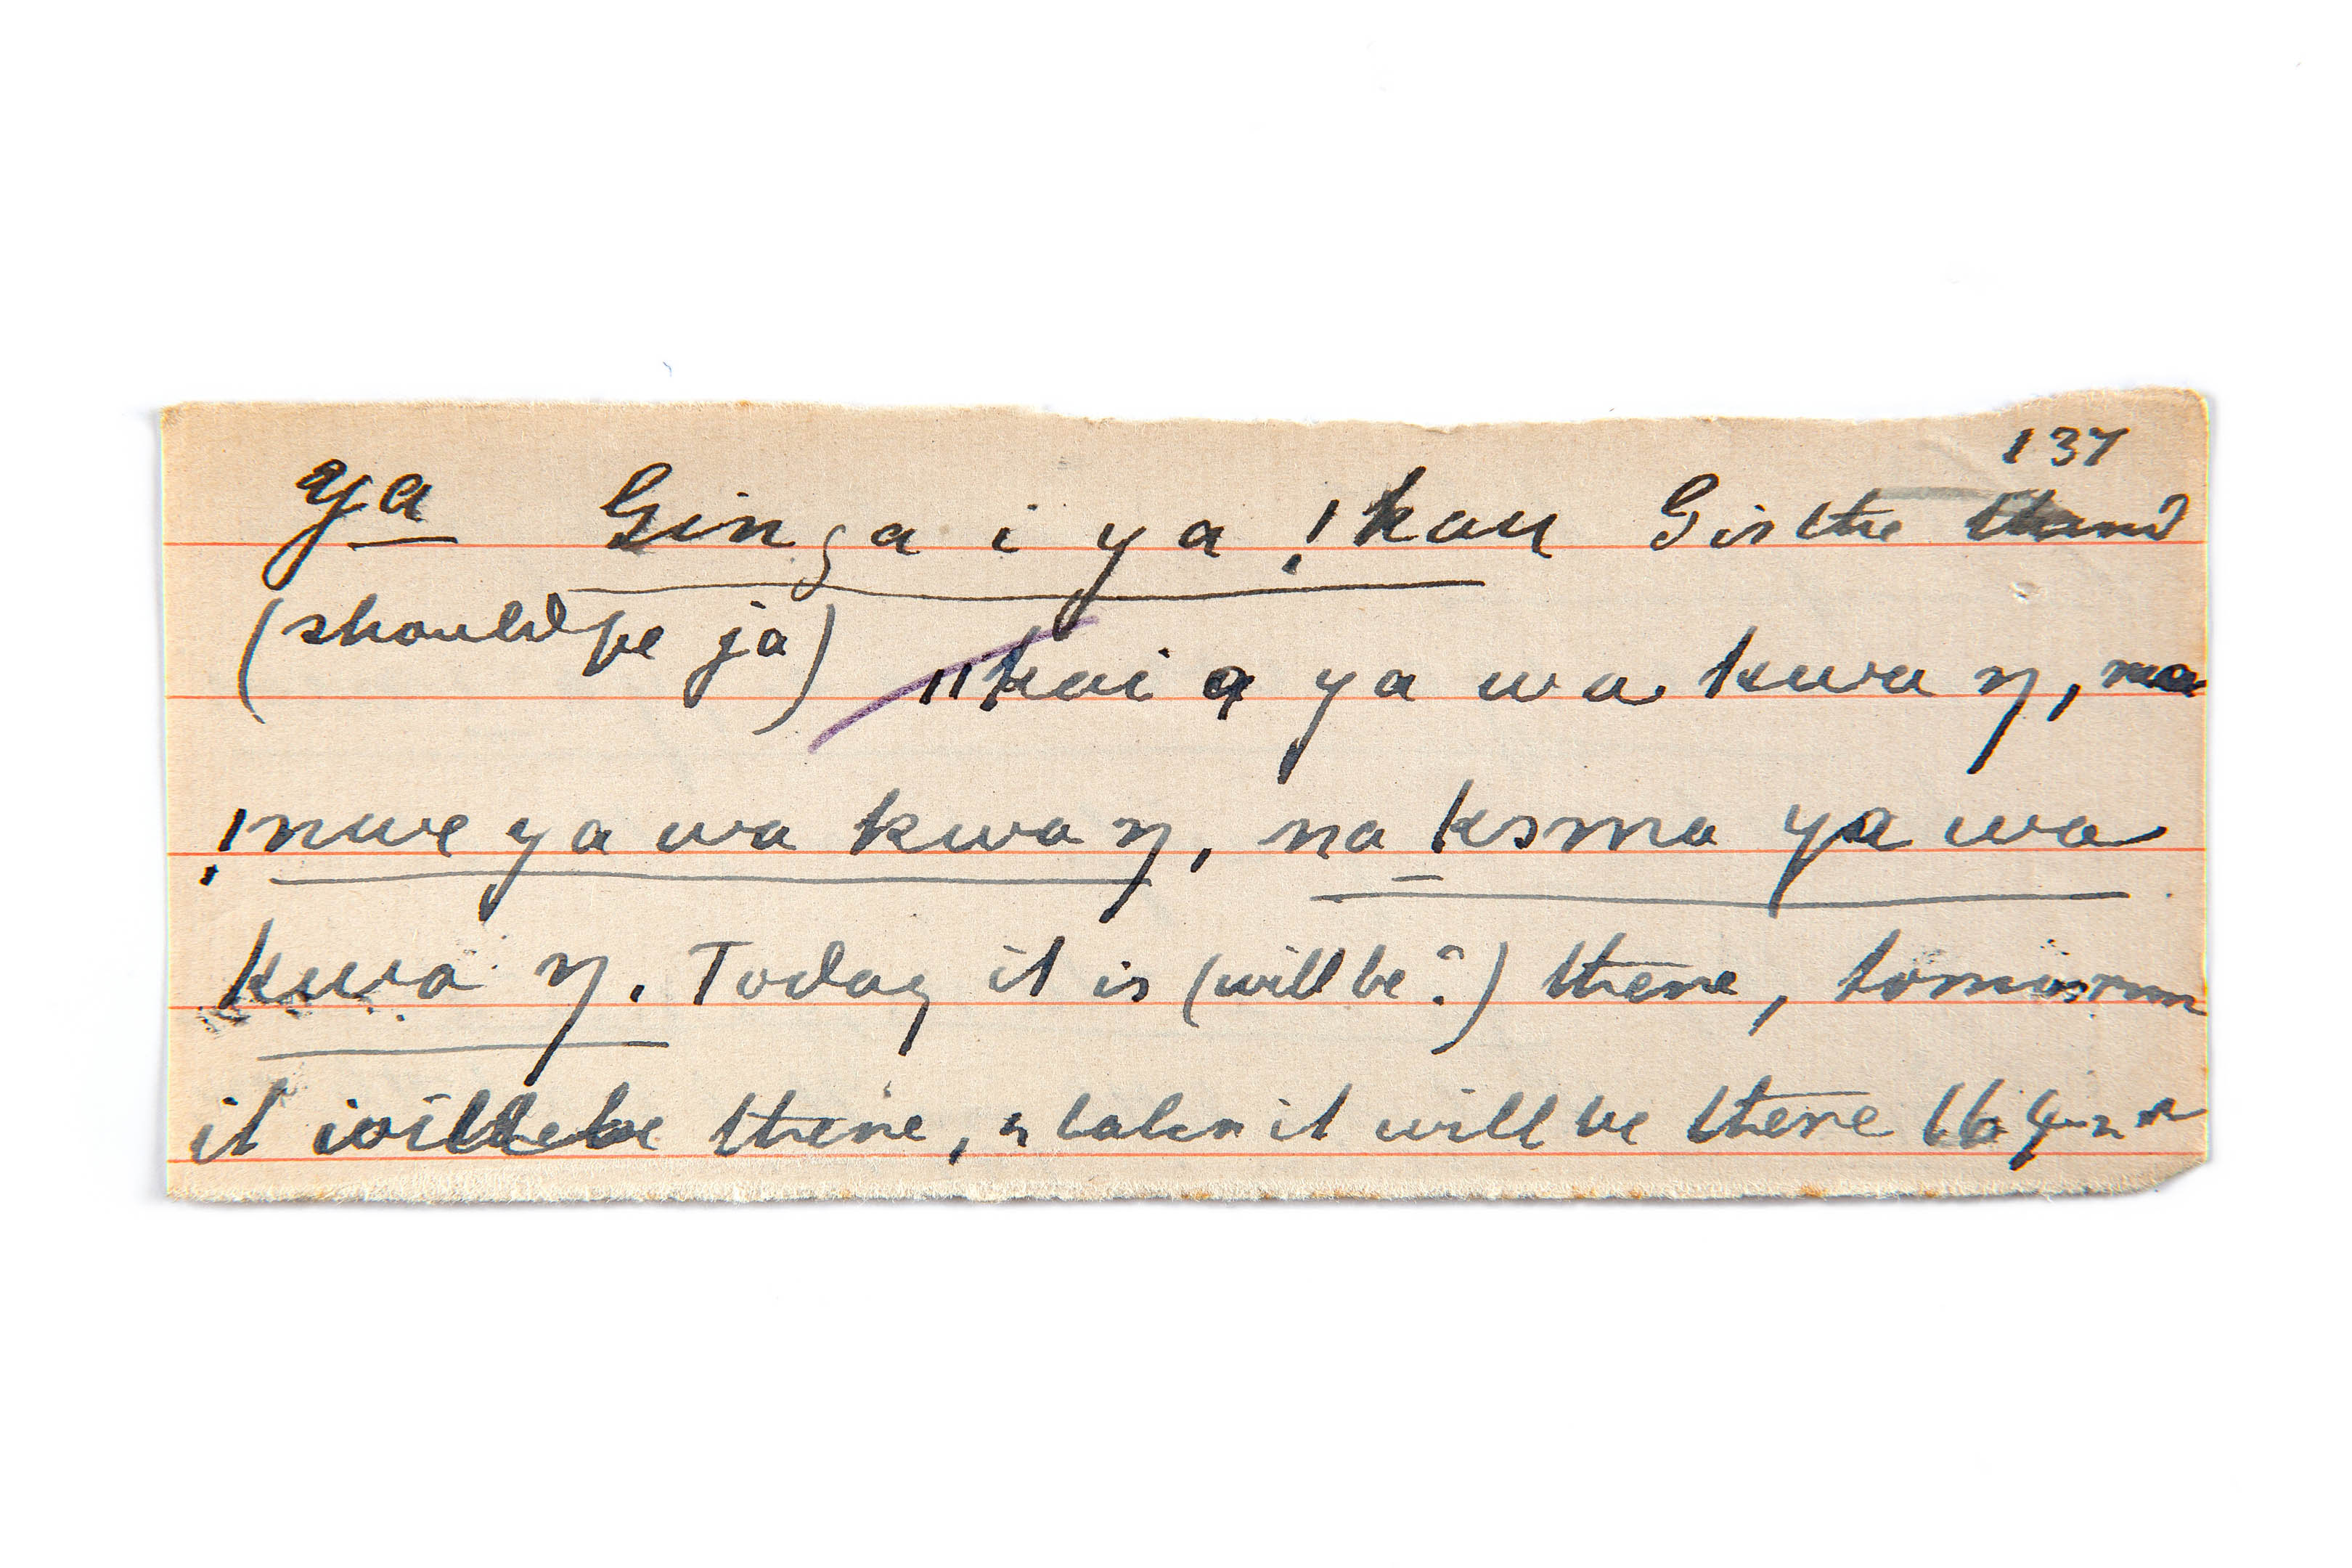 137
ya Ginga i ya !kau G is the
(should be ja) ǁkai a ya wa kwa ŋ, na
!nwe ya wa kwa ŋ, na ksma ya wa
kwa ŋ. Today it is (will be?) there, tomorrow
it will be there, it will be there